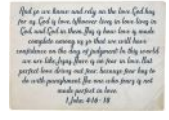 And so we know and rely on the love God has
for us. God is love. Whoever lives in love lives in
God, and God in them. This is how love is made
complete among us so that we will have
confidence on the day of judgment: In this world
we are like Jesus. There is no fear in love. But
perfect love drives out fear, because fear has to
do with punishment. The one who fears is not
made perfect in love.
1 John 4:16-18